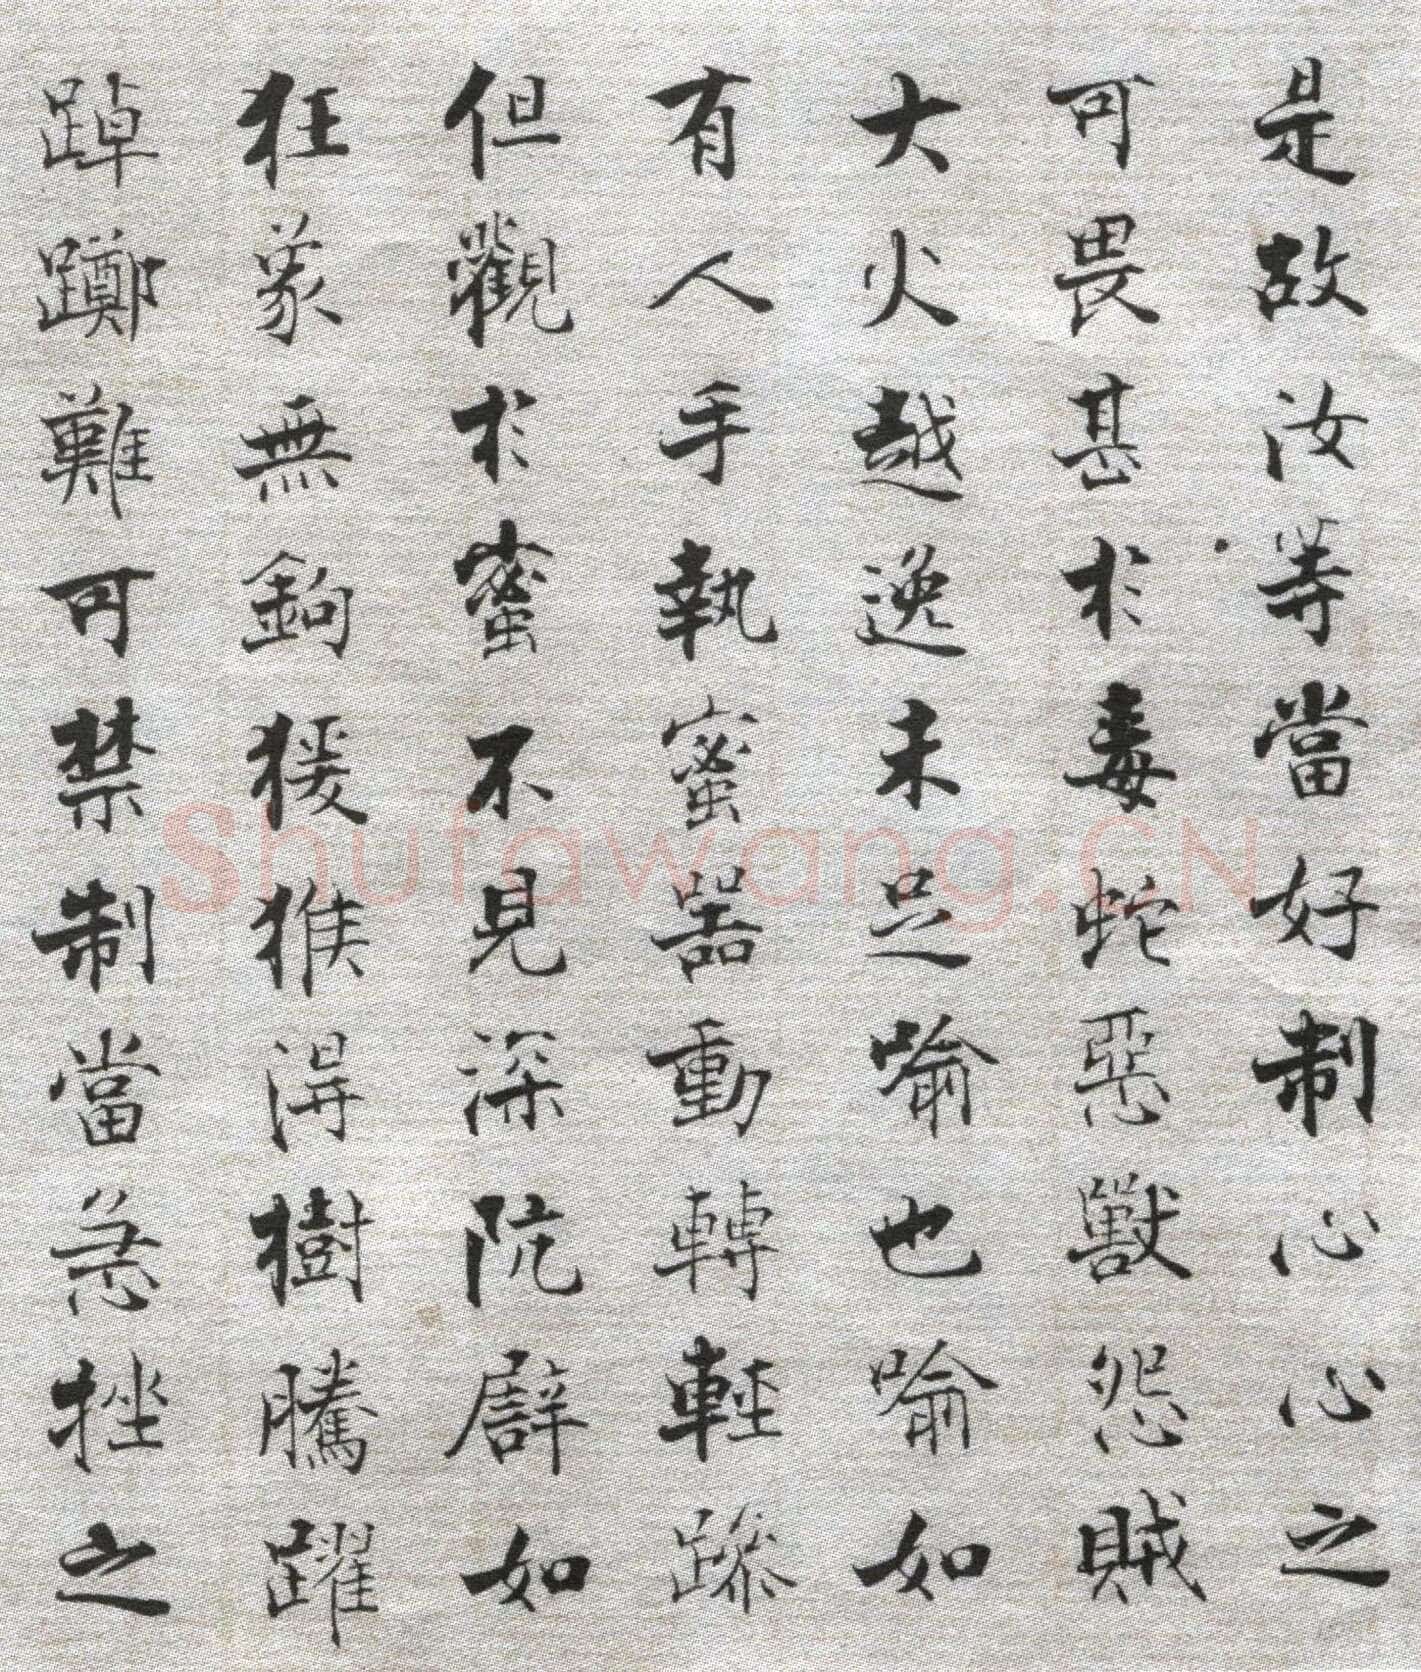 是故汝等當好制心心之
可畏甚於毒蛇惡獸怨賊
大火越逸未足喻也喻如
有人手執蜜器動轉輕躁
但觀於蜜不見深阬廦如
狂象無鉤猨猴得樹騰躍
踔躑難可禁制當急挫之
Shufawang.CN